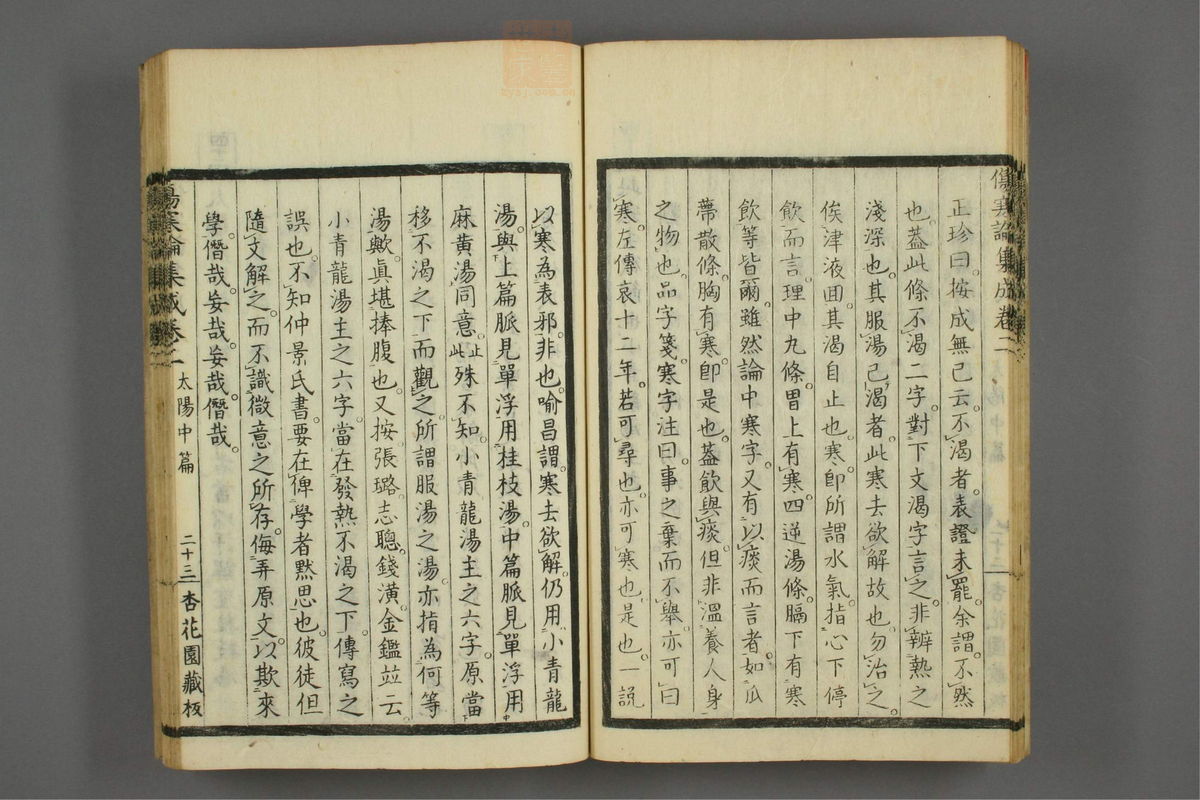 傷寒論集成卷二
正珍曰。按成無己云。不渴者。表證未罷。余謂。不然
也。蓋此條不渴二字。對下文渴字言之。非辨熱之
淺深也。其服湯已渴者。此寒去欲解故也。勿治之。
俟津液回。其渴自止也。寒即所謂水氣。指心下停
飲而言。理中九條。胃上有寒。四逆湯條。膈下有寒
飲等皆爾。雖然論中寒字。又有以痰而言者。如瓜
蔕散條。胸有寒。即是也。蓋飲與痰。但非溫養人身
之物也。品字箋。寒字注曰。事之棄而不舉。亦可曰
寒。左傳哀十二年。若可尋也。亦可寒也。是也。一說
以寒為表邪。非也。喻昌謂。寒去欲解。仍用小青龍
湯。與上篇脈見單浮。用桂枝湯。中篇脈見單浮。用
麻黃湯同意。止此殊不知。小青龍湯主之六字。原當
移不渴之下而觀之。所謂服湯之湯。亦指為何等
湯歟。眞堪捧腹也。又按張璐。志聰。錢潢。金鑑竝云。
小青龍湯主之六字。當在發熱不渴之下。傳寫之
誤也。不知仲景氏書。要在俾學者默思也。彼徒但
隨文解之。而不識微意之所存。侮弄原文。以欺來
學。僭哉。妄哉。妄哉。僭哉。
傷寒論集成卷二 太陽中篇 二十三 杏花園藏板